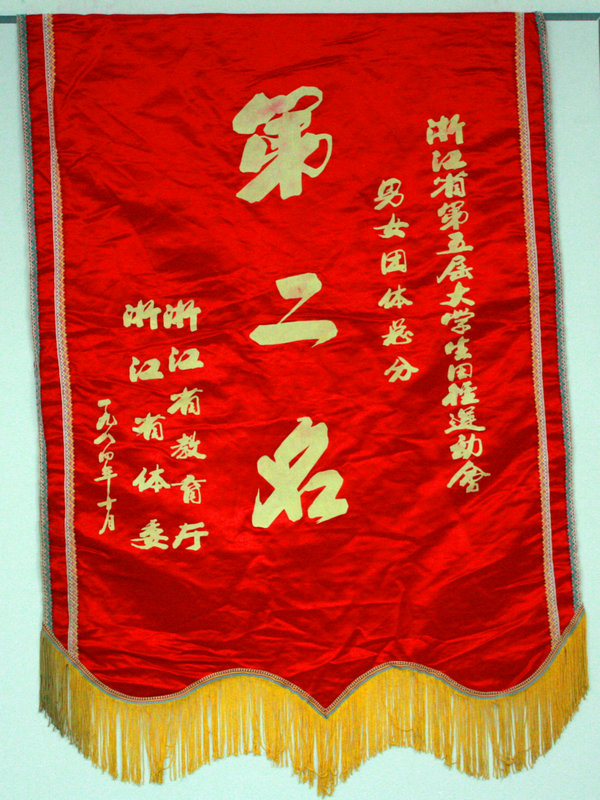 浙江省第五届大学生田径运动會
男女团体总分
第二名
浙江省教育厅
浙江省体委
一九八四年十月